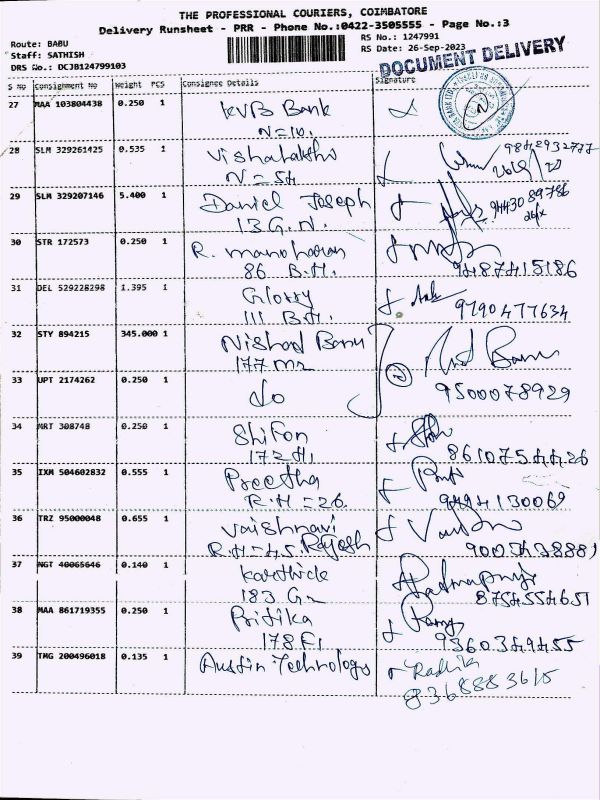 THE PROFESSIONAL COURIERS, COIMBATORE
Delivery Runsheet - PRR - Phone No.:0422-3505555 - Page No.:3
Route: BABU
Staff: SATHISH
DRS No.: DCJB124799103
RS No.: 1247991
RS Date: 26-Sep-2023
DOCUMENT DELIVERY
S No Consignment No Weight PCS Consignee Details Signature
27 MAA 103804438 0.250 1 KVB Bank
N=10.
28 SLM 329261425 0.535 1 9842932777
N=54
29 SLM 329207146 5.400 1 Daniel Joseph 9443089786
13 G.N.
30 STR 172573 0.250 1 R. manoharan
86 B.H. 9487415186
31 DEL 529228298 1.395 1 Glorry
111 B.H. 9790477634
32 STY 894215 345.000 1 Nishad Banu
177 m2
33 UPT 2174262 0.250 1 do 9500078929
34 MRT 308748 0.250 1 Shifon
172 H1 8610754426
35 IXM 504602832 0.555 1 Preetha
R.H=26 9494130069
36 TRZ 95000048 0.655 1 Vaishnavi
R.H=45. Rajesh
37 NGT 40065646 0.140 1 Karthick
183 G2 8754554651
38 MAA 861719355 0.250 1 Pritika
178 F1 9360369455
39 TMG 200496018 0.135 1 Austin Technology Radhika